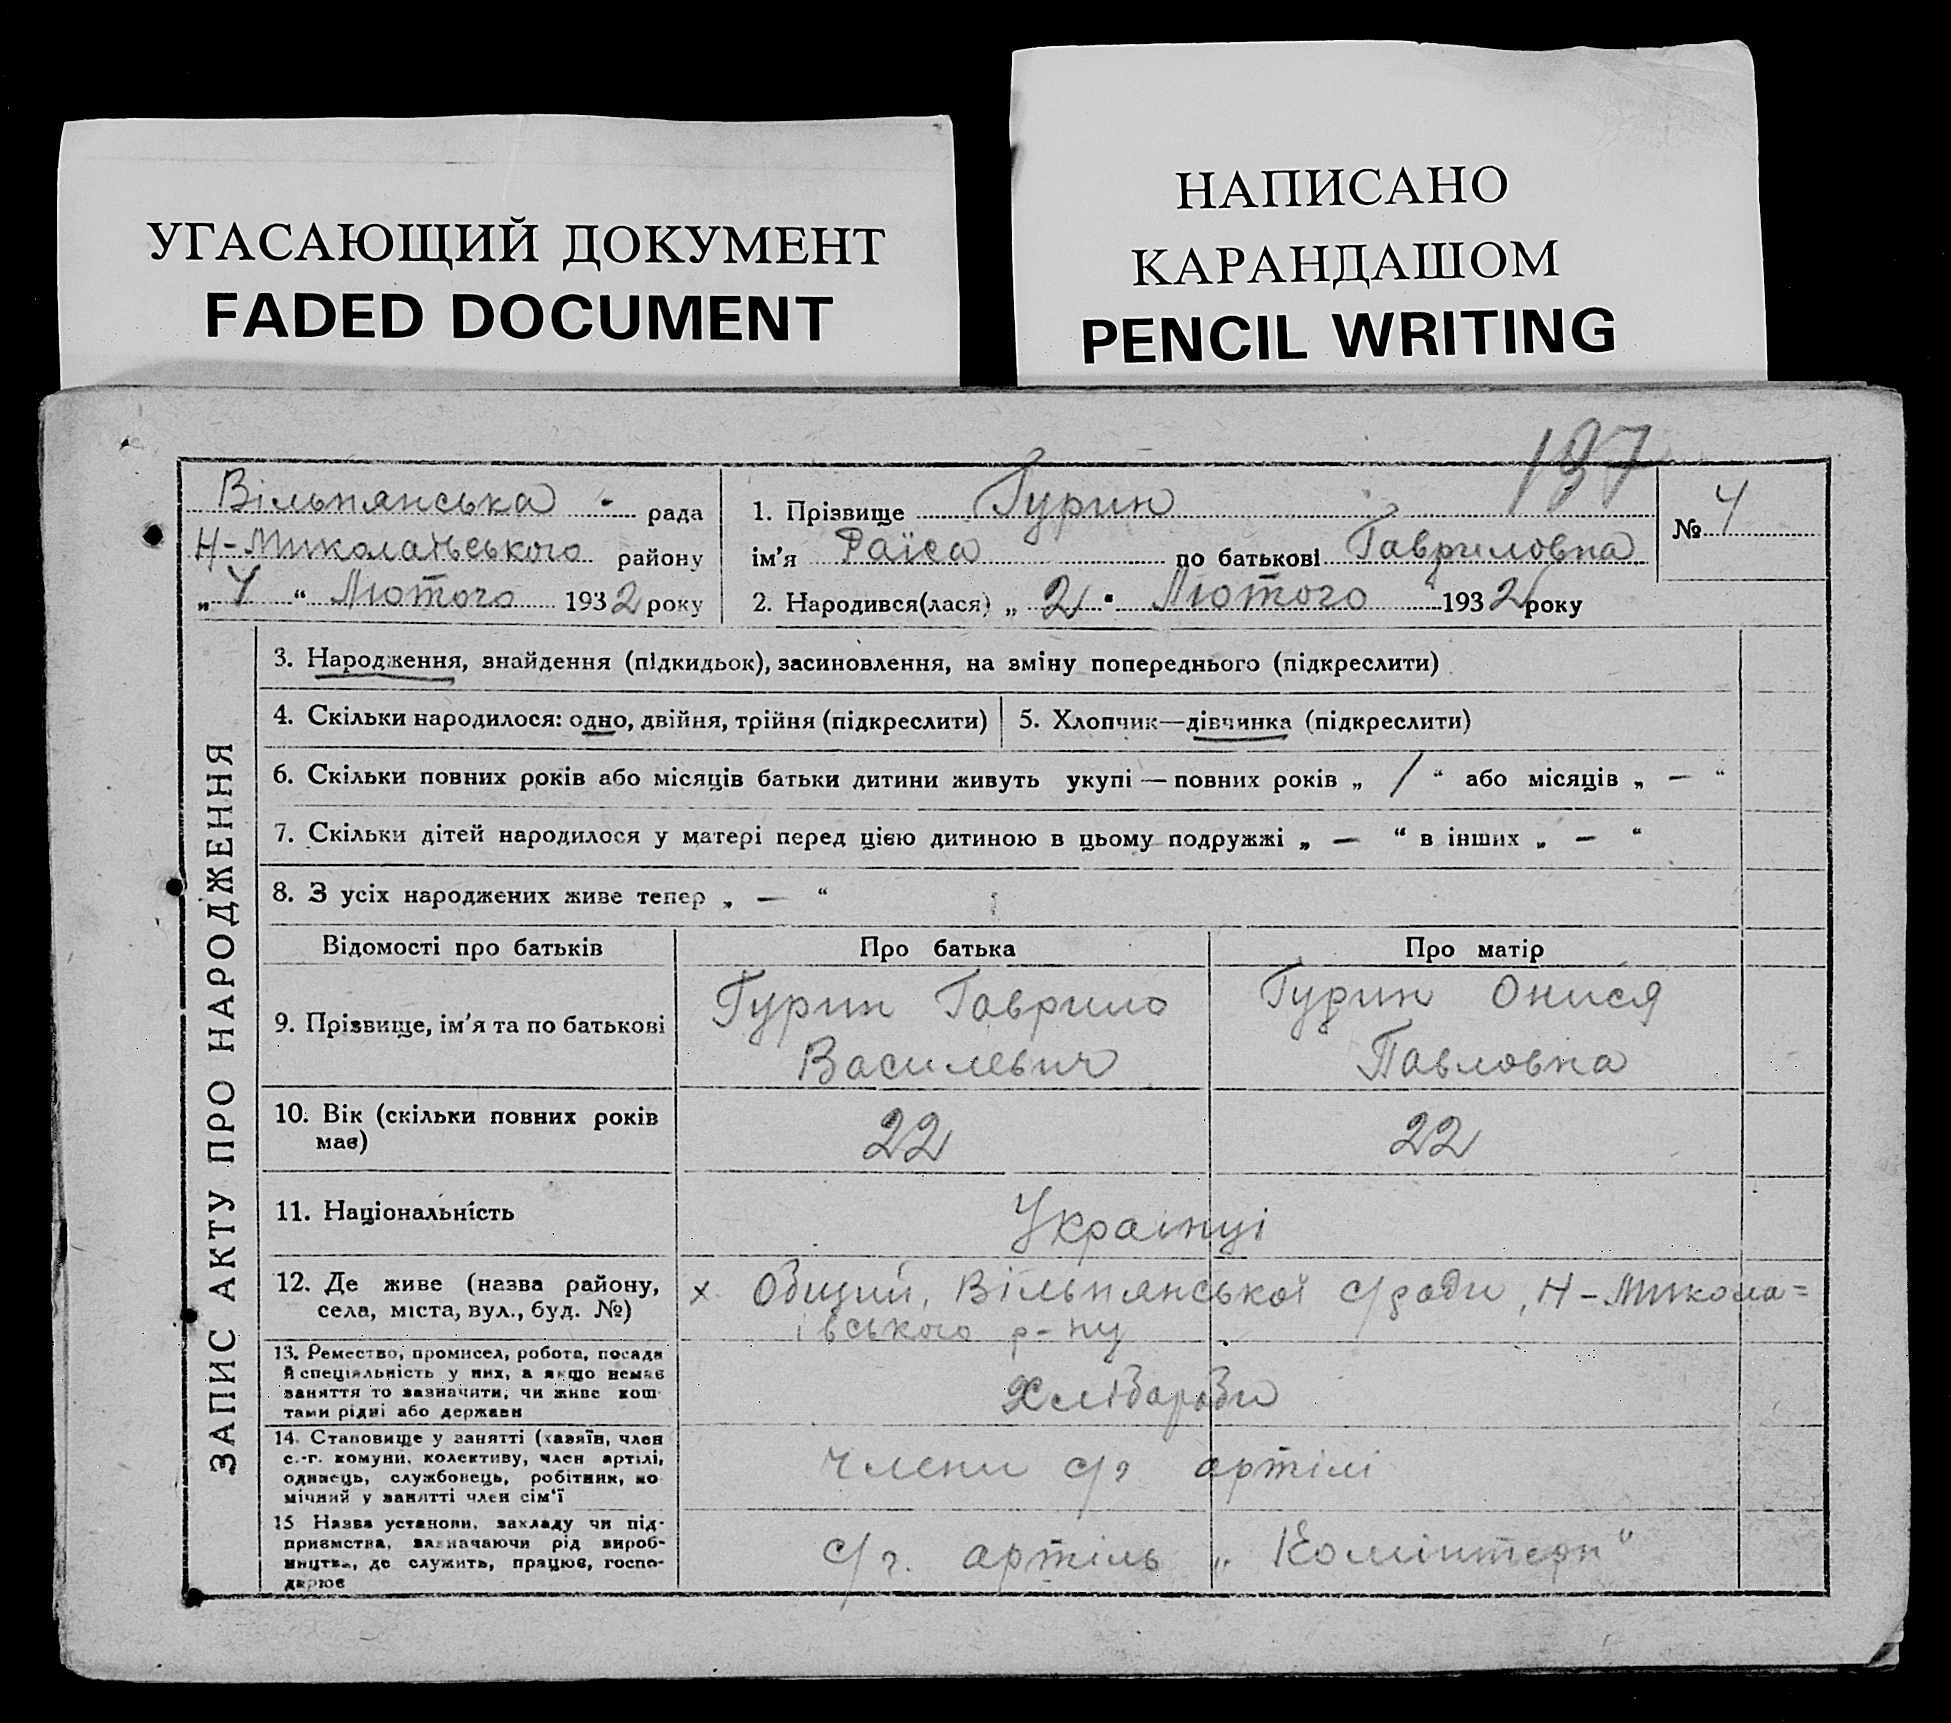 УГАСАЮЩИЙ ДОКУМЕНТ
FADED DOCUMENT
НАПИСАНО
КАРАНДАШОМ
PENCIL WRITING
137
Вільнянська рада
Н-Миколаївського району
„4“ Лютого 1932 року
1. Прізвище Гурин
ім’я Раїса по батькові Гавриловна
2. Народився(лася) „2“ Лютого 1932 року
№ 4
ЗАПИС АКТУ ПРО НАРОДЖЕННЯ
3. Народження, знайдення (підкидьок), засиновлення, на зміну попереднього (підкреслити)
4. Скільки народилося: одно, двійня, трійня (підкреслити)
5. Хлопчик—дівчинка (підкреслити)
6. Скільки повних років або місяців батьки дитини живуть укупі — повних років „ / “ або місяців „ — “
7. Скільки дітей народилося у матері перед цією дитиною в цьому подружжі „ — “ в інших „ — “
8. З усіх народжених живе тепер „ — “
Відомості про батьків Про батька Про матір
9. Прізвище, ім’я та по батькові
Гурин Гаврило
Василевич
Гурин Онися
Павловна
10. Вік (скільки повних років
має)
22
22
11. Національність
Украінці
12. Де живе (назва району,
села, міста, вул., буд. №)
х. Общий, Вільнянської с/ради, Н-Микола=
івського р-ну
13. Ремество, промисел, робота, посада
й спеціяльність у них, а якщо немає
заняття то зазначити, чи живе кош-
тами рідні або держави
Хлібороби
14. Становище у занятті (хазяїн, член
с.-г. комуни, колективу, член артілі,
одинець, службовець, робітник, по-
мічний у занятті член сім’ї
Члени с/г артілі
15 Назва установи, закладу чи під-
приємства, зазначаючи рід вироб-
ництва, де служить, працює, госпо-
дарює
с/г. артіль „Комінтерн“